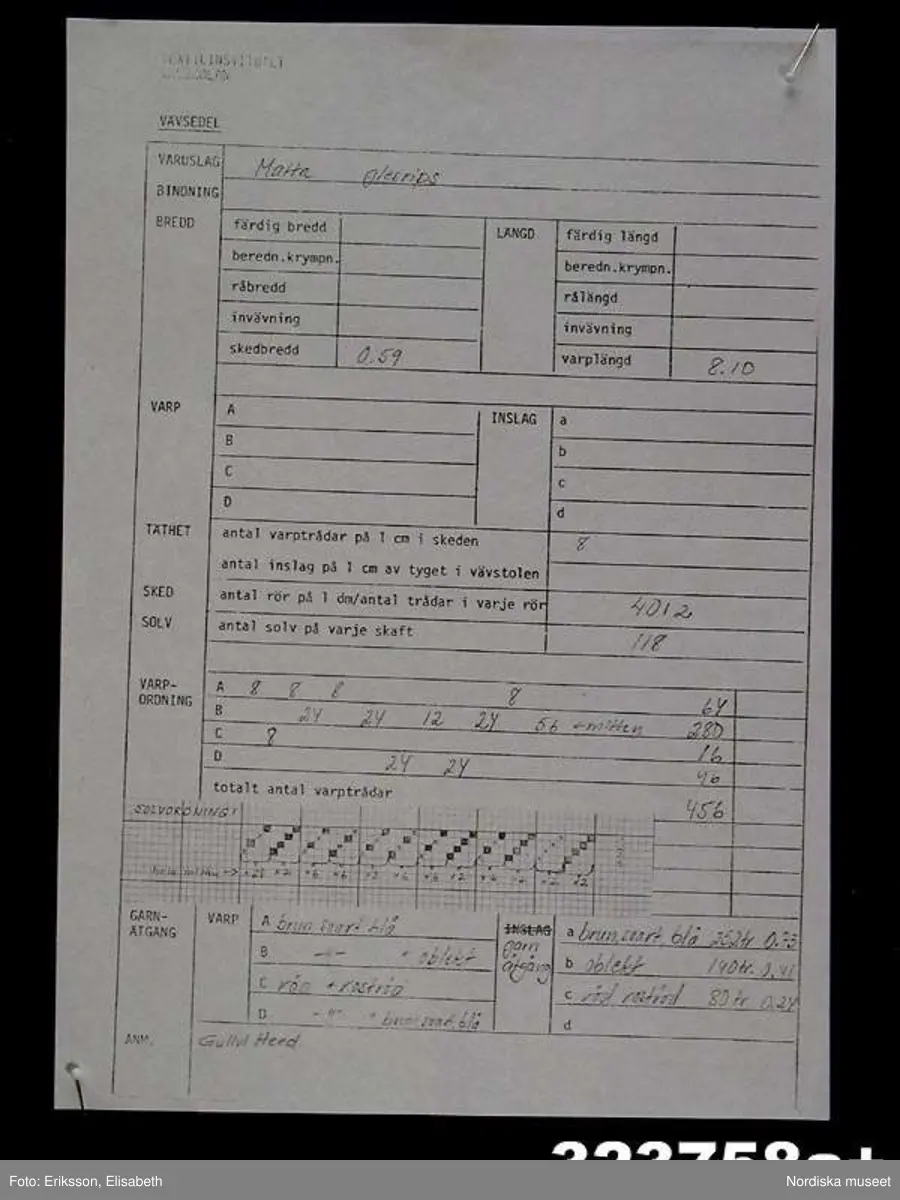 TEXTILINSTITUTET
VÄVSEDEL
VARUSLAG Matta glesrips
BINDNING
BREDD färdig bredd LÄNGD färdig längd
beredn.krympn. beredn.krympn.
råbredd rålängd
invävning invävning
skedbredd 0.59 varplängd 8.10
VARP A INSLAG a
B b
C c
D d
TÄTHET antal varptrådar på 1 cm i skeden 8
antal inslag på 1 cm av tyget i vävstolen
SKED antal rör på 1 dm/antal trådar i varje rör 40 1 2
SOLV antal solv på varje skaft 118
VARP-
ORDNING
A 8 8 8 8 64
B 24 24 12 24 56 ←mitten 280
C 8 16
D 24 24 96
totalt antal varptrådar 456
SOLVORDNING!
GARN-
ÅTGÅNG
VARP A brun, svart, blå INSLAG garn åtgång a brun, svart, blå 352tr 0.73
B -"- " oblekt b oblekt 140tr. 0,41
C röd + roströd c röd, roströd 80tr 0.24
D -"- " brun, svart, blå d
ANM. Gullvi Heed
323758a+
Foto: Eriksson, Elisabeth Nordiska museet